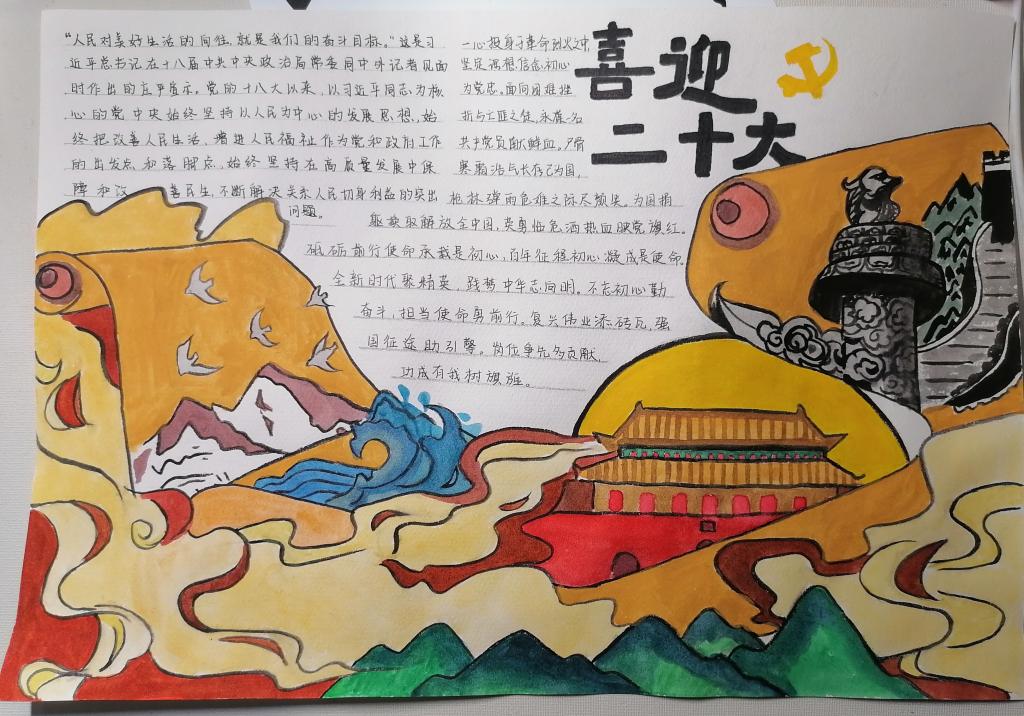 喜迎
二十大
“人民对美好生活的向往，就是我们的奋斗目标。”这是习
近平总书记在十八届中共中央政治局常委同中外记者见面
时作出的庄严宣示，党的十八大以来，以习近平同志为核
心的党中央始终坚持以人民为中心的发展思想，始
终把改善人民生活、增进人民福祉作为党和政府工作
的出发点和落脚点，始终坚持在高质量发展中保
障和 善民生，不断解决关系人民切身利益的突出
问题。
一心投身于革命烈火之中，
坚定理想信念初心
为党忠。面向困难挫
折与土匪之徒，永葆一名
共产党员血鲜血，
寒霜浩气长存己为国，
枪林弹雨危难之际尽颓失。为国捐
躯换取解放全中国，英勇临危洒热血映党旗红。
砥砺前行使命承载是初心，百年征程初心凝成是使命。
全新时代聚精英，践梦中华志向明。不忘初心勤
奋斗，担当使命勇前行。复兴伟业添砖瓦，强
国征途助引擎。岗位争先多贡献，
功成有我树旗旌。